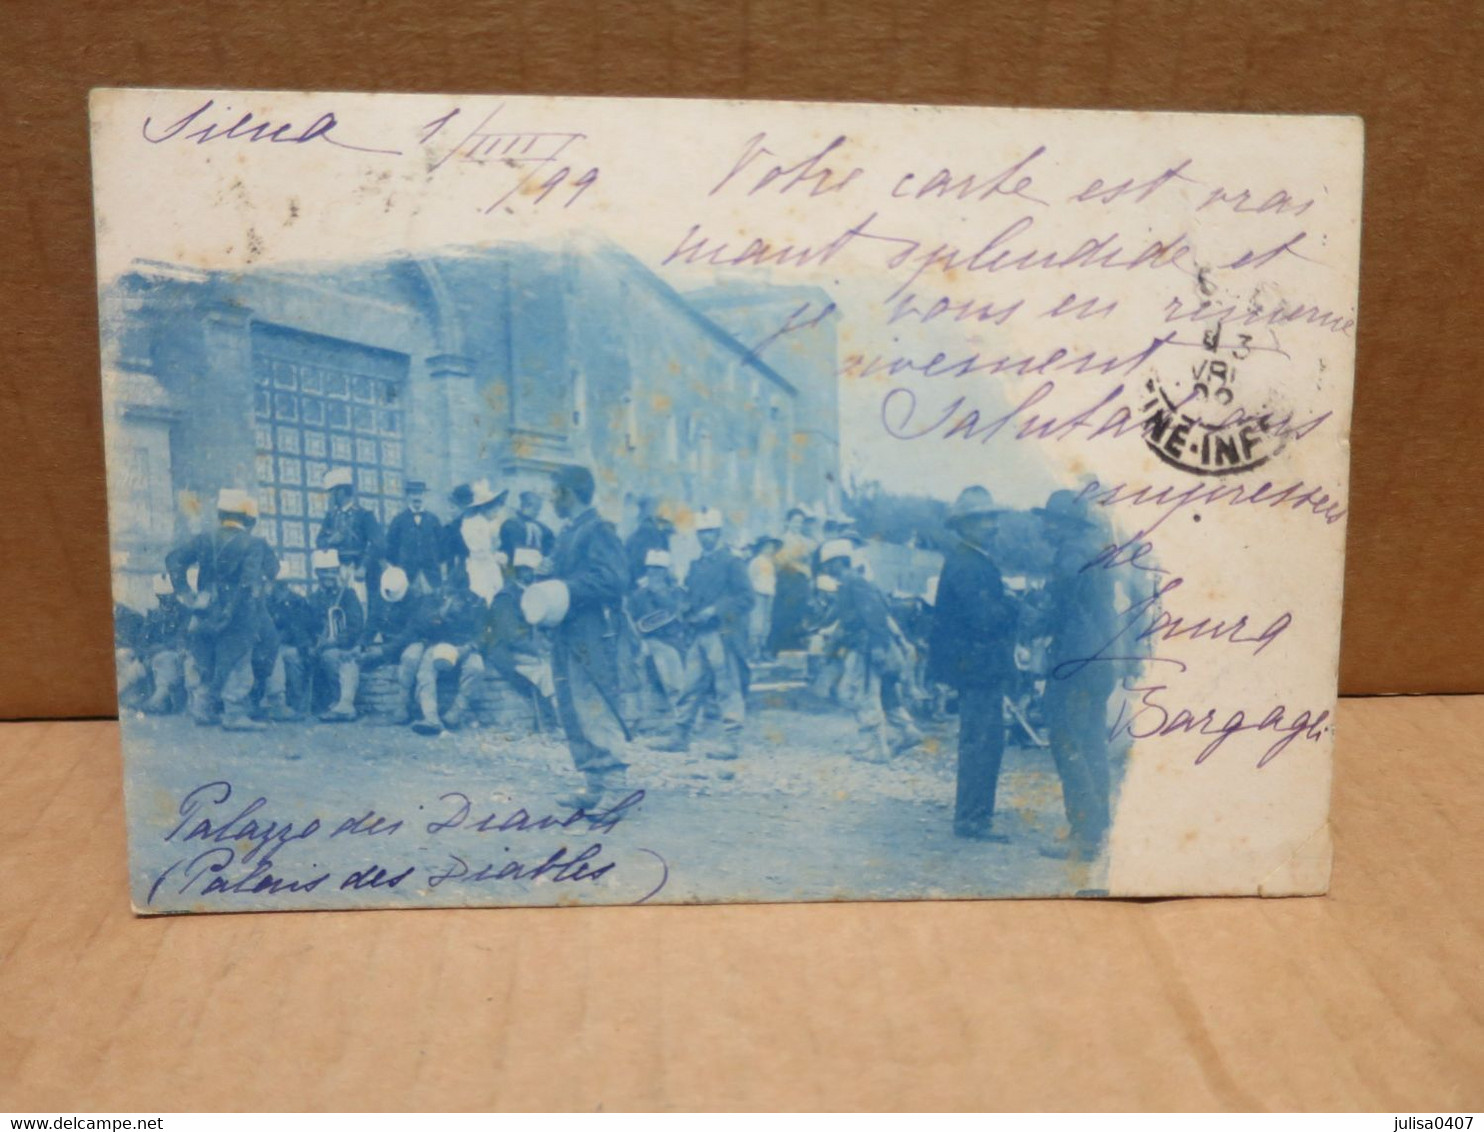 Siena 1/IIII
/99
Votre carte est vrai
mant splendide et
je vous en remercie
vivement
Salutations
empressées
de
Laura
Bargagli
3
INE-INF
Palazzo dei Diavoli
(Palais des Diables)
julisa0407